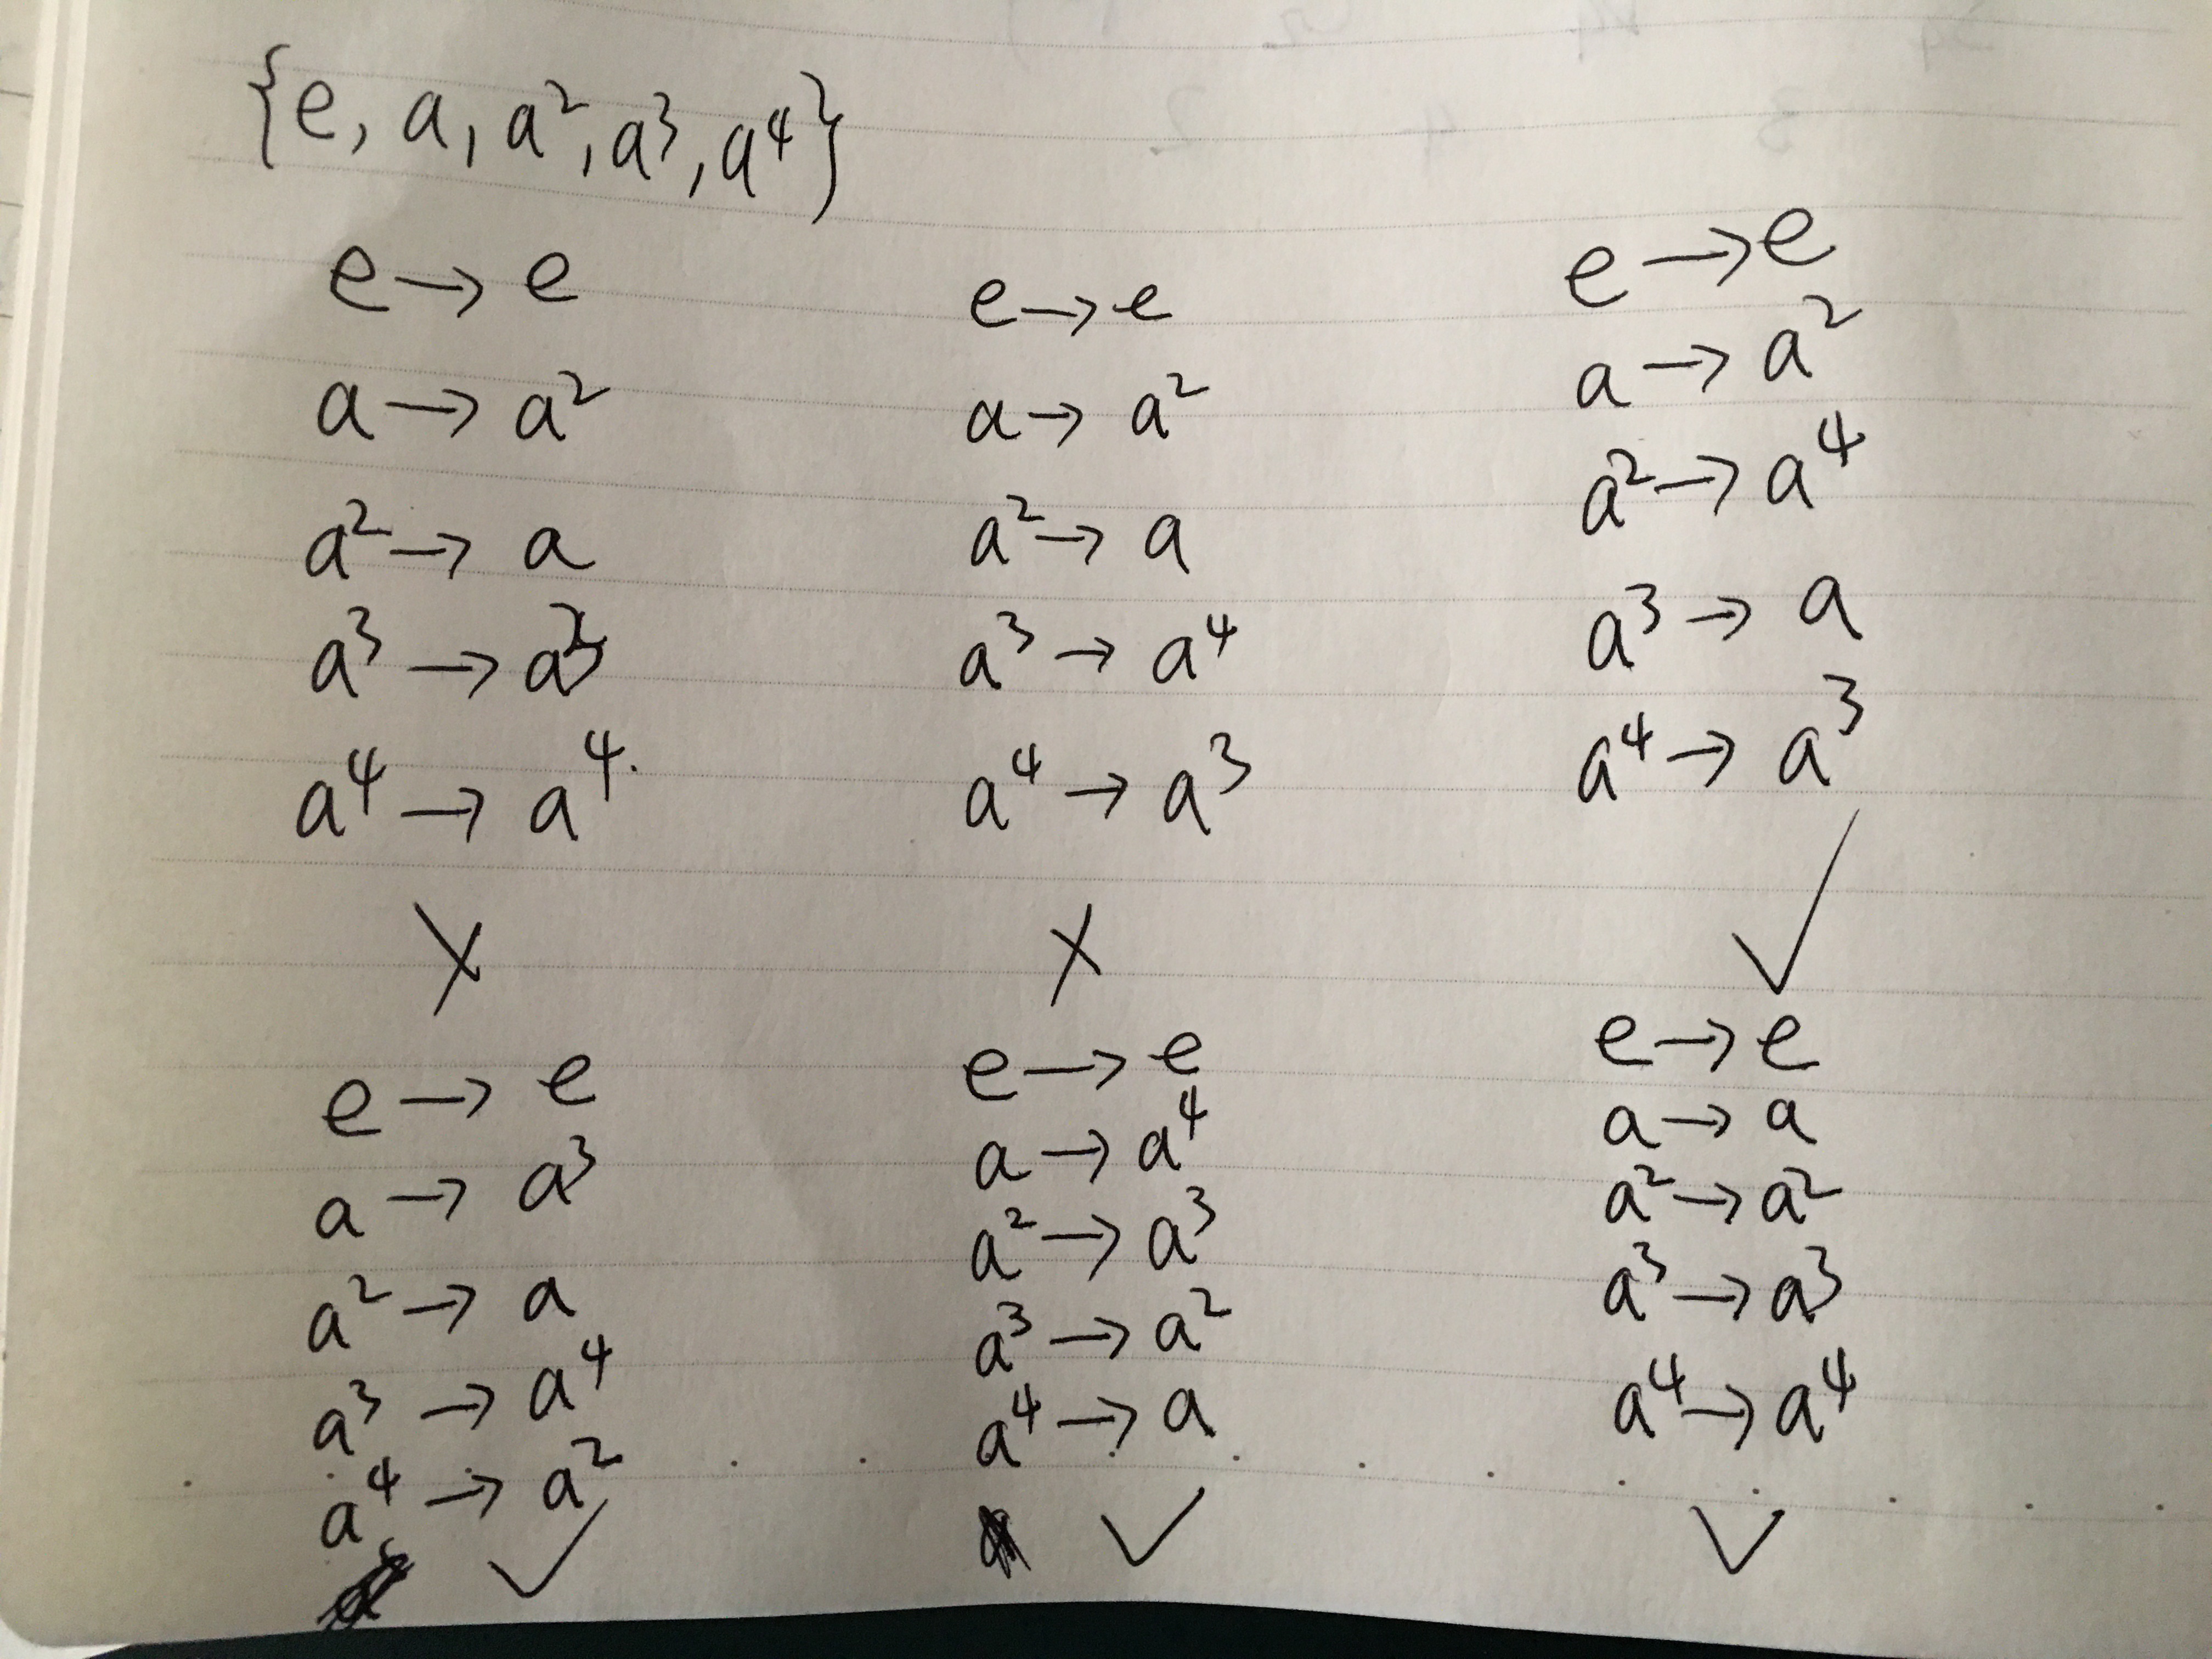 {e, a, a², a³, a⁴}
e → e
a → a²
a² → a
a³ → a³
a⁴ → a⁴.
X
e → e
a → a²
a² → a
a³ → a⁴
a⁴ → a³
X
e → e
a → a²
a² → a⁴
a³ → a
a⁴ → a³
✓
e → e
a → a³
a² → a
a³ → a⁴
a⁴ → a²
✓
e → e
a → a⁴
a² → a³
a³ → a²
a⁴ → a
✓
e → e
a → a
a² → a²
a³ → a³
a⁴ → a⁴
✓